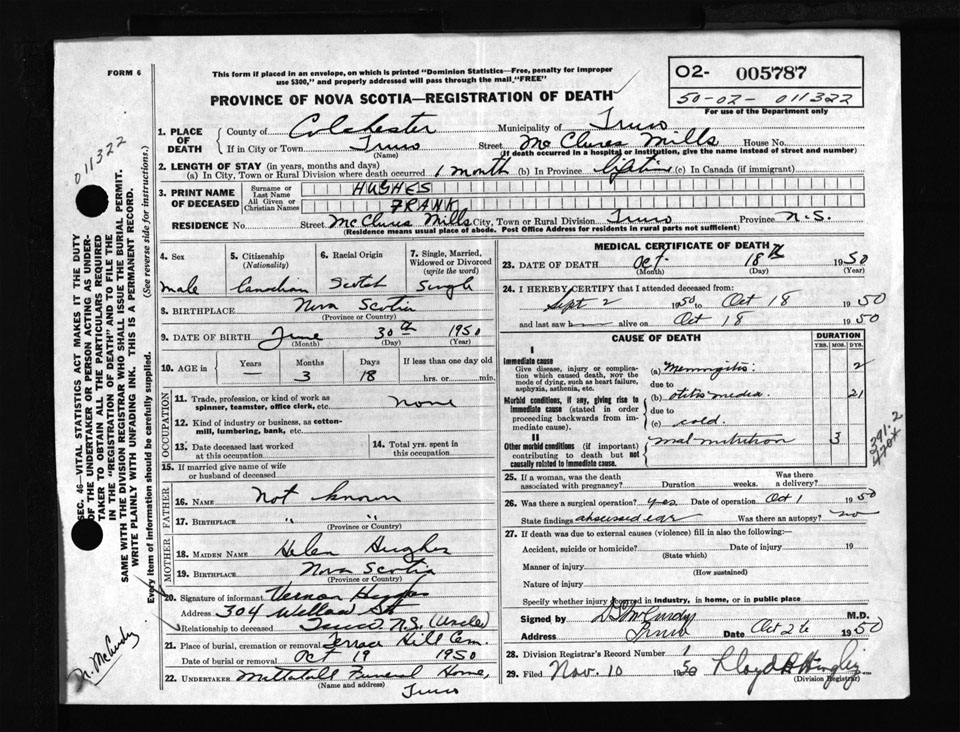 FORM 6
This form if placed in an envelope, on which is printed "Dominion Statistics—Free, penalty for improper
use $300," and properly addressed will pass through the mail "FREE"
PROVINCE OF NOVA SCOTIA—REGISTRATION OF DEATH
O2- 005787
50-02-011322
For use of the Department only
011322
SEC. 46—VITAL STATISTICS ACT MAKES IT THE DUTY
OF THE UNDERTAKER OR PERSON ACTING AS UNDER-
TAKER TO OBTAIN ALL THE PARTICULARS REQUIRED
IN THE "REGISTRATION OF DEATH" AND TO FILE THE
SAME WITH THE DIVISION REGISTRAR WHO SHALL ISSUE THE BURIAL PERMIT.
WRITE PLAINLY WITH UNFADING INK. THIS IS A PERMANENT RECORD.
Every item of information should be carefully supplied. (See reverse side for instructions.)
N. McCurdy
1. PLACE OF DEATH County of Colchester Municipality of Truro
If in City or Town Truro (Name) Street McClures Mills House No.
(If death occurred in a hospital or institution, give the name instead of street and number)
2. LENGTH OF STAY (in years, months and days)
(a) In City, Town or Rural Division where death occurred 1 month (b) In Province lifetime (c) In Canada (if immigrant)
3. PRINT NAME OF DECEASED Surname or Last Name HUGHES
All Given or Christian Names FRANK
RESIDENCE No. Street McClures Mills City, Town or Rural Division Truro Province N.S.
(Residence means usual place of abode. Post Office Address for residents in rural parts not sufficient)
4. Sex 5. Citizenship (Nationality) 6. Racial Origin 7. Single, Married, Widowed or Divorced (write the word)
male Canadian Scotch Single
8. BIRTHPLACE Nova Scotia
(Province or Country)
9. DATE OF BIRTH June 30th 1950
(Month) (Day) (Year)
10. AGE in Years Months Days If less than one day old
— 3 18 hrs. or min.
OCCUPATION
11. Trade, profession, or kind of work as spinner, teamster, office clerk, etc. none
12. Kind of industry or business, as cotton-mill, lumbering, bank, etc.
13. Date deceased last worked at this occupation
14. Total yrs. spent in this occupation
15. If married give name of wife or husband of deceased
FATHER
16. NAME Not known
17. BIRTHPLACE " "
(Province or Country)
MOTHER
18. MAIDEN NAME Helen Hughes
19. BIRTHPLACE Nova Scotia
(Province or Country)
20. Signature of informant Vernon
Address 304 Willow St
Relationship to deceased Truro N.S. (Uncle)
21. Place of burial, cremation or removal Terrace Hill Cem.
Date of burial or removal Oct 19 1950
22. UNDERTAKER Mattatall Funeral Home,
(Name and address) Truro
MEDICAL CERTIFICATE OF DEATH
23. DATE OF DEATH Oct. 18th 1950
(Month) (Day) (Year)
24. I HEREBY CERTIFY that I attended deceased from:
Sept 2 1950 to Oct 18 1950
and last saw h alive on Oct 18 1950
CAUSE OF DEATH DURATION
YRS. MOS. DYS.
I
Immediate cause
Give disease, injury or complication which caused death, NOT the mode of dying, such as heart failure, asphyxia, asthenia, etc.
(a) Meningitis 2
due to
Morbid conditions, if any, giving rise to immediate cause (stated in order proceeding backwards from immediate cause).
(b) otitis media. 21
due to
(c) cold.
II
Other morbid conditions (if important) contributing to death but not causally related to immediate cause.
malnutrition 3
391.2
25. If a woman, was the death associated with pregnancy? Duration weeks. Was there a delivery?
26. Was there a surgical operation? yes Date of operation Oct 1 1950
State findings abscessed ear Was there an autopsy? no
27. If death was due to external causes (violence) fill in also the following:
Accident, suicide or homicide? Date of injury 19
(State which)
Manner of injury
(How sustained)
Nature of injury
Specify whether injury occurred in industry, in home, or in public place
Signed by McCurdy M.D.
Address Truro Date Oct 26 1950
28. Division Registrar's Record Number 1
29. Filed Nov. 10 1950 Lloyd
(Division Registrar)